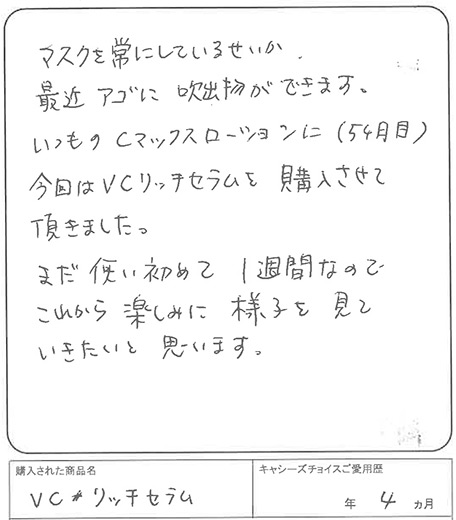 マスクを常にしているせいか、
最近 アゴに 吹出物ができます。
いつもの Cマックスローションに (5ヶ月目)
今回は VCリッチセラムを 購入させて
頂きました。
まだ 使い初めて 1週間なので
これから 楽しみに 様子を 見て
いきたいと 思います。
購入された商品名
VC*リッチセラム
キャシーズチョイスご愛用歴
年 4 ヵ月